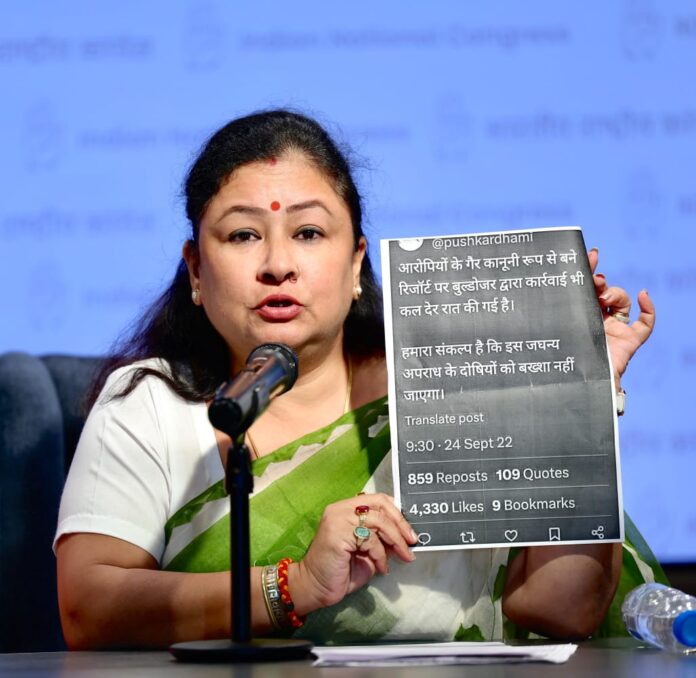 Indian National Congress
@pushkardhami
आरोपियों के गैर कानूनी रूप से बने
रिजॉर्ट पर बुल्डोजर द्वारा कार्रवाई भी
कल देर रात की गई है।
हमारा संकल्प है कि इस जघन्य
अपराध के दोषियों को बख्शा नहीं
जाएगा।
Translate post
9:30 · 24 Sept 22
859 Reposts 109 Quotes
4,330 Likes 9 Bookmarks